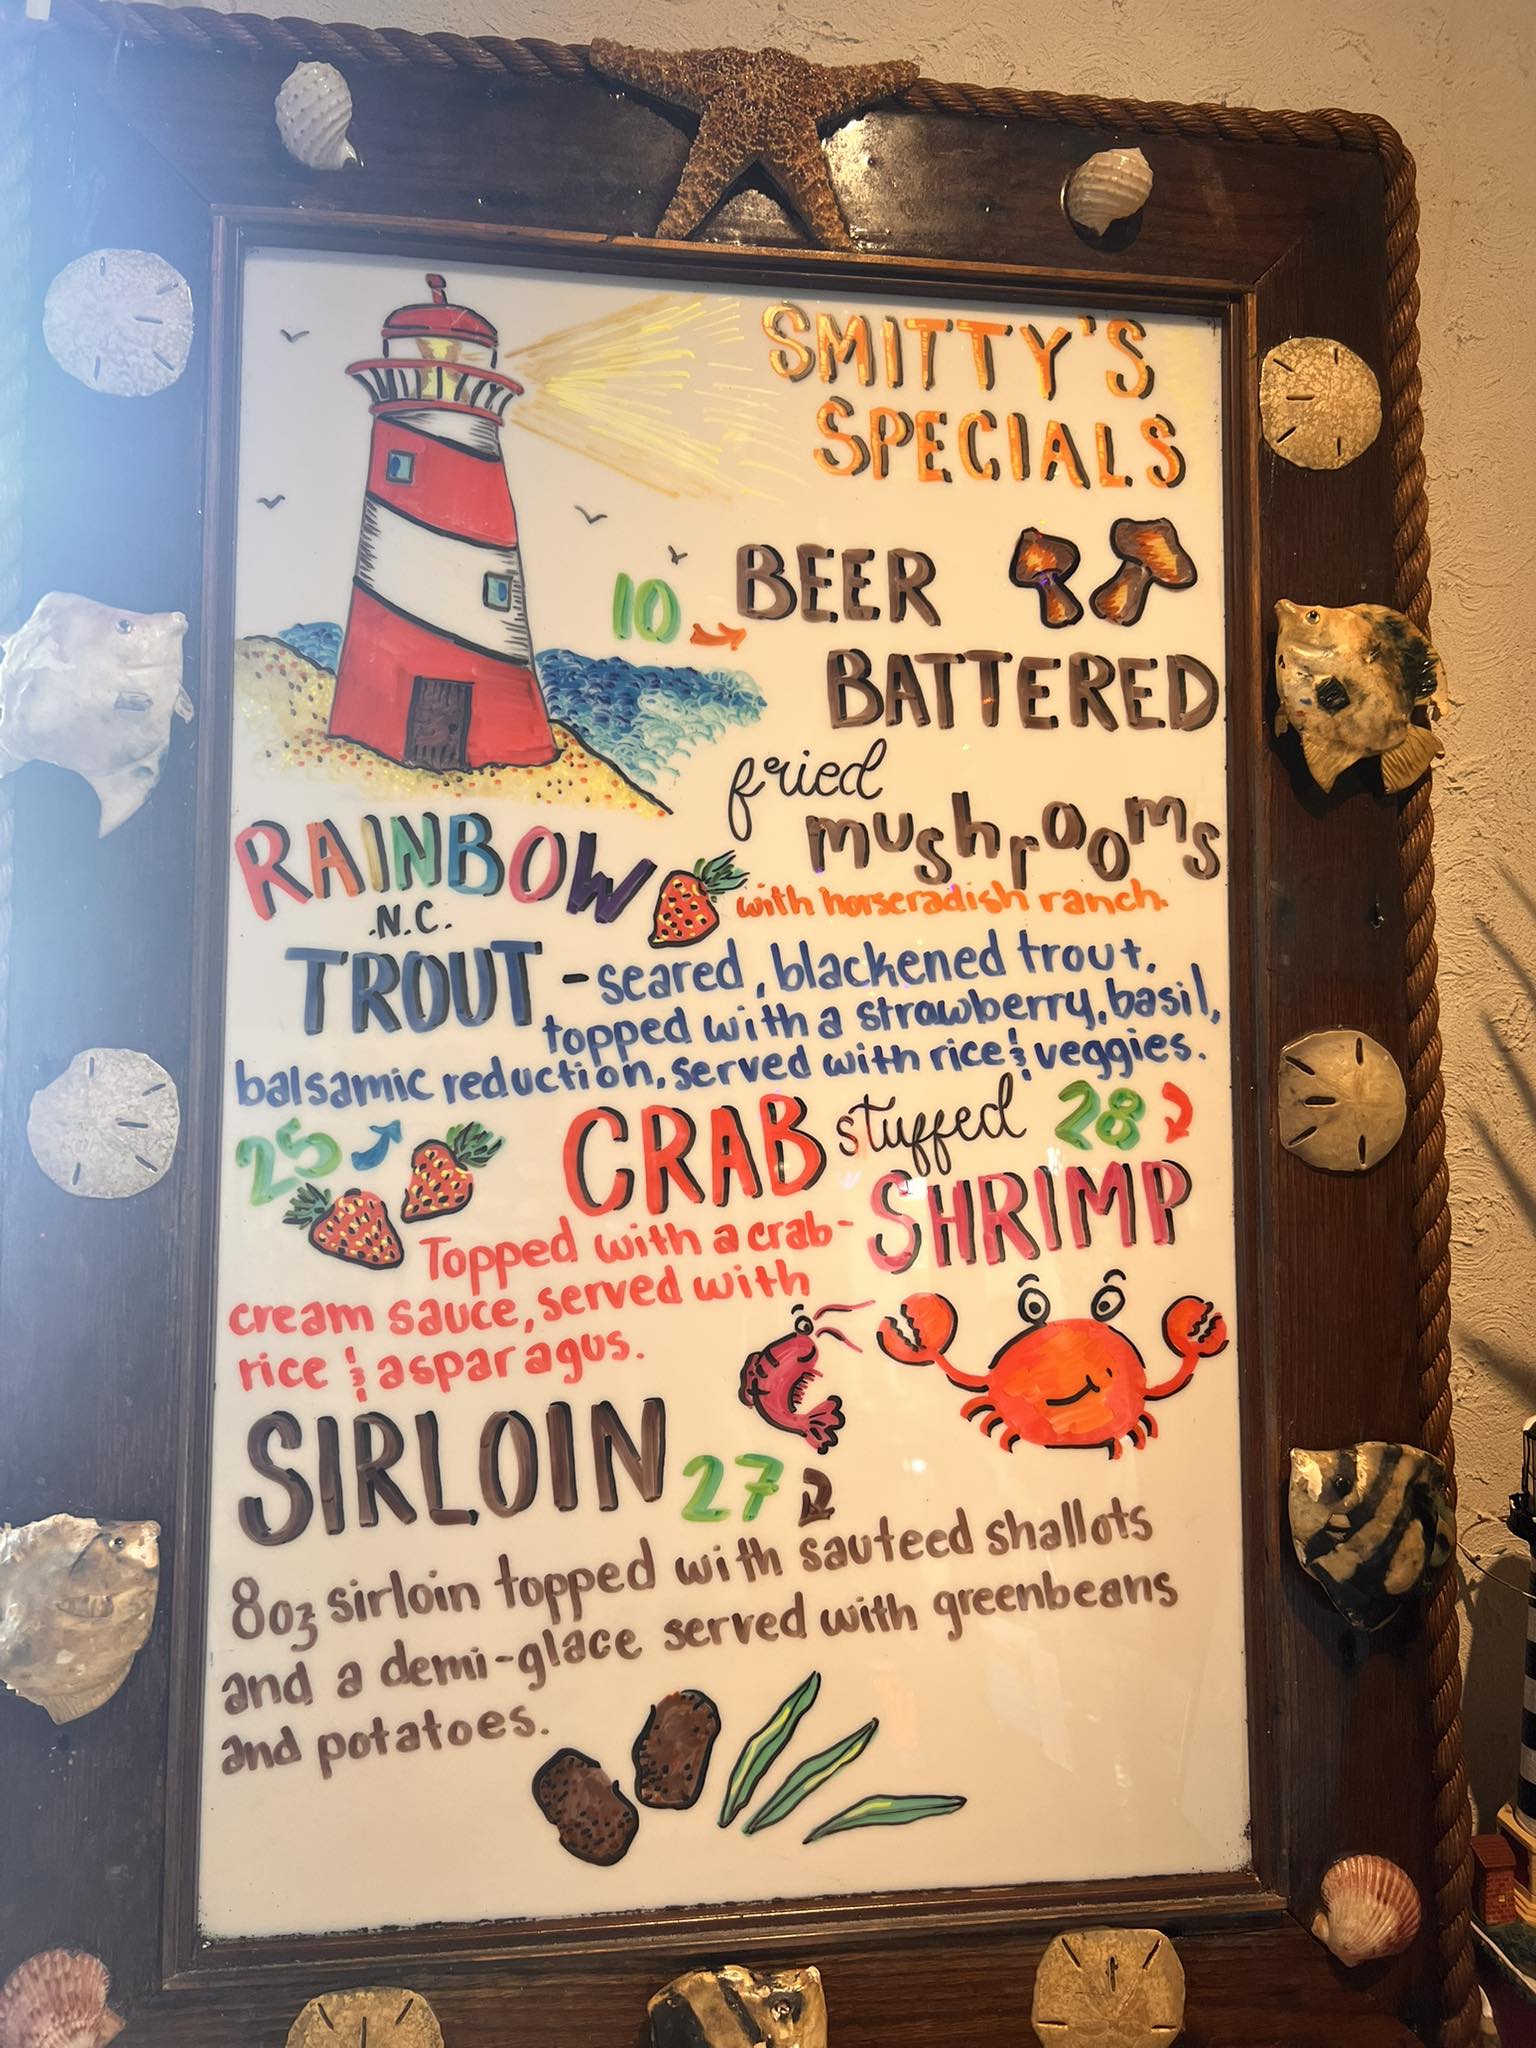 SMITTY'S
SPECIALS
10 BEER
BATTERED
fried
mushrooms
with horseradish ranch.
RAINBOW
.N.C.
TROUT - seared, blackened trout,
topped with a strawberry, basil,
balsamic reduction, served with rice & veggies.
25
CRAB stuffed 28
SHRIMP
Topped with a crab-
cream sauce, served with
rice & asparagus.
SIRLOIN 27
8oz sirloin topped with sauteed shallots
and a demi-glace served with greenbeans
and potatoes.